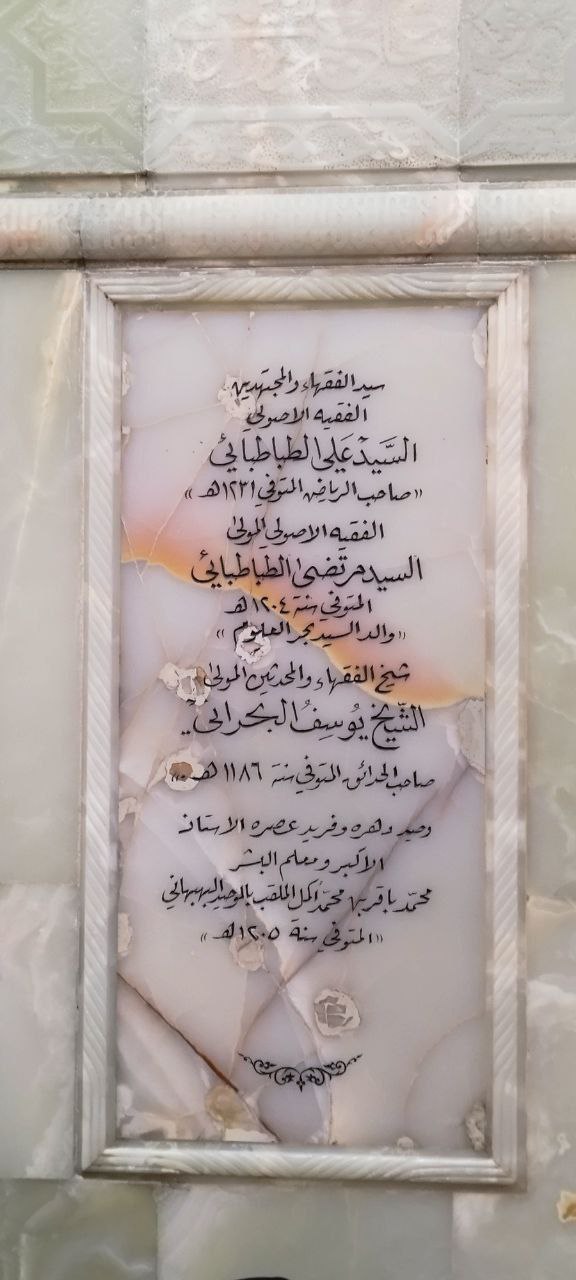 سيد الفقهاء والمجتهدين
الفقيه الاصولي
السَّيِّد عَلي الطباطبائي
«صاحب الرياض المتوفي ١٢٣١هـ»
الفقيه الاصولي المولىٰ
السيد مرتضىٰ الطباطبائي
المتوفي سنة ١٢٠٤هـ
«والد السيد بحر العلوم»
شيخ الفقهاء والمحدثين المولىٰ
الشّيخ يُوسِفُ البحراني
صاحب الحدائق المتوفي سنة ١١٨٦ هـ
وحيد دهره وفريد عصره الاستاذ
الاكبر ومعلم البشر
محمّد باقر بن محمّد أكمل الملقب بالوحيد البهبهاني
«المتوفي سنة ١٢٠٥هـ»